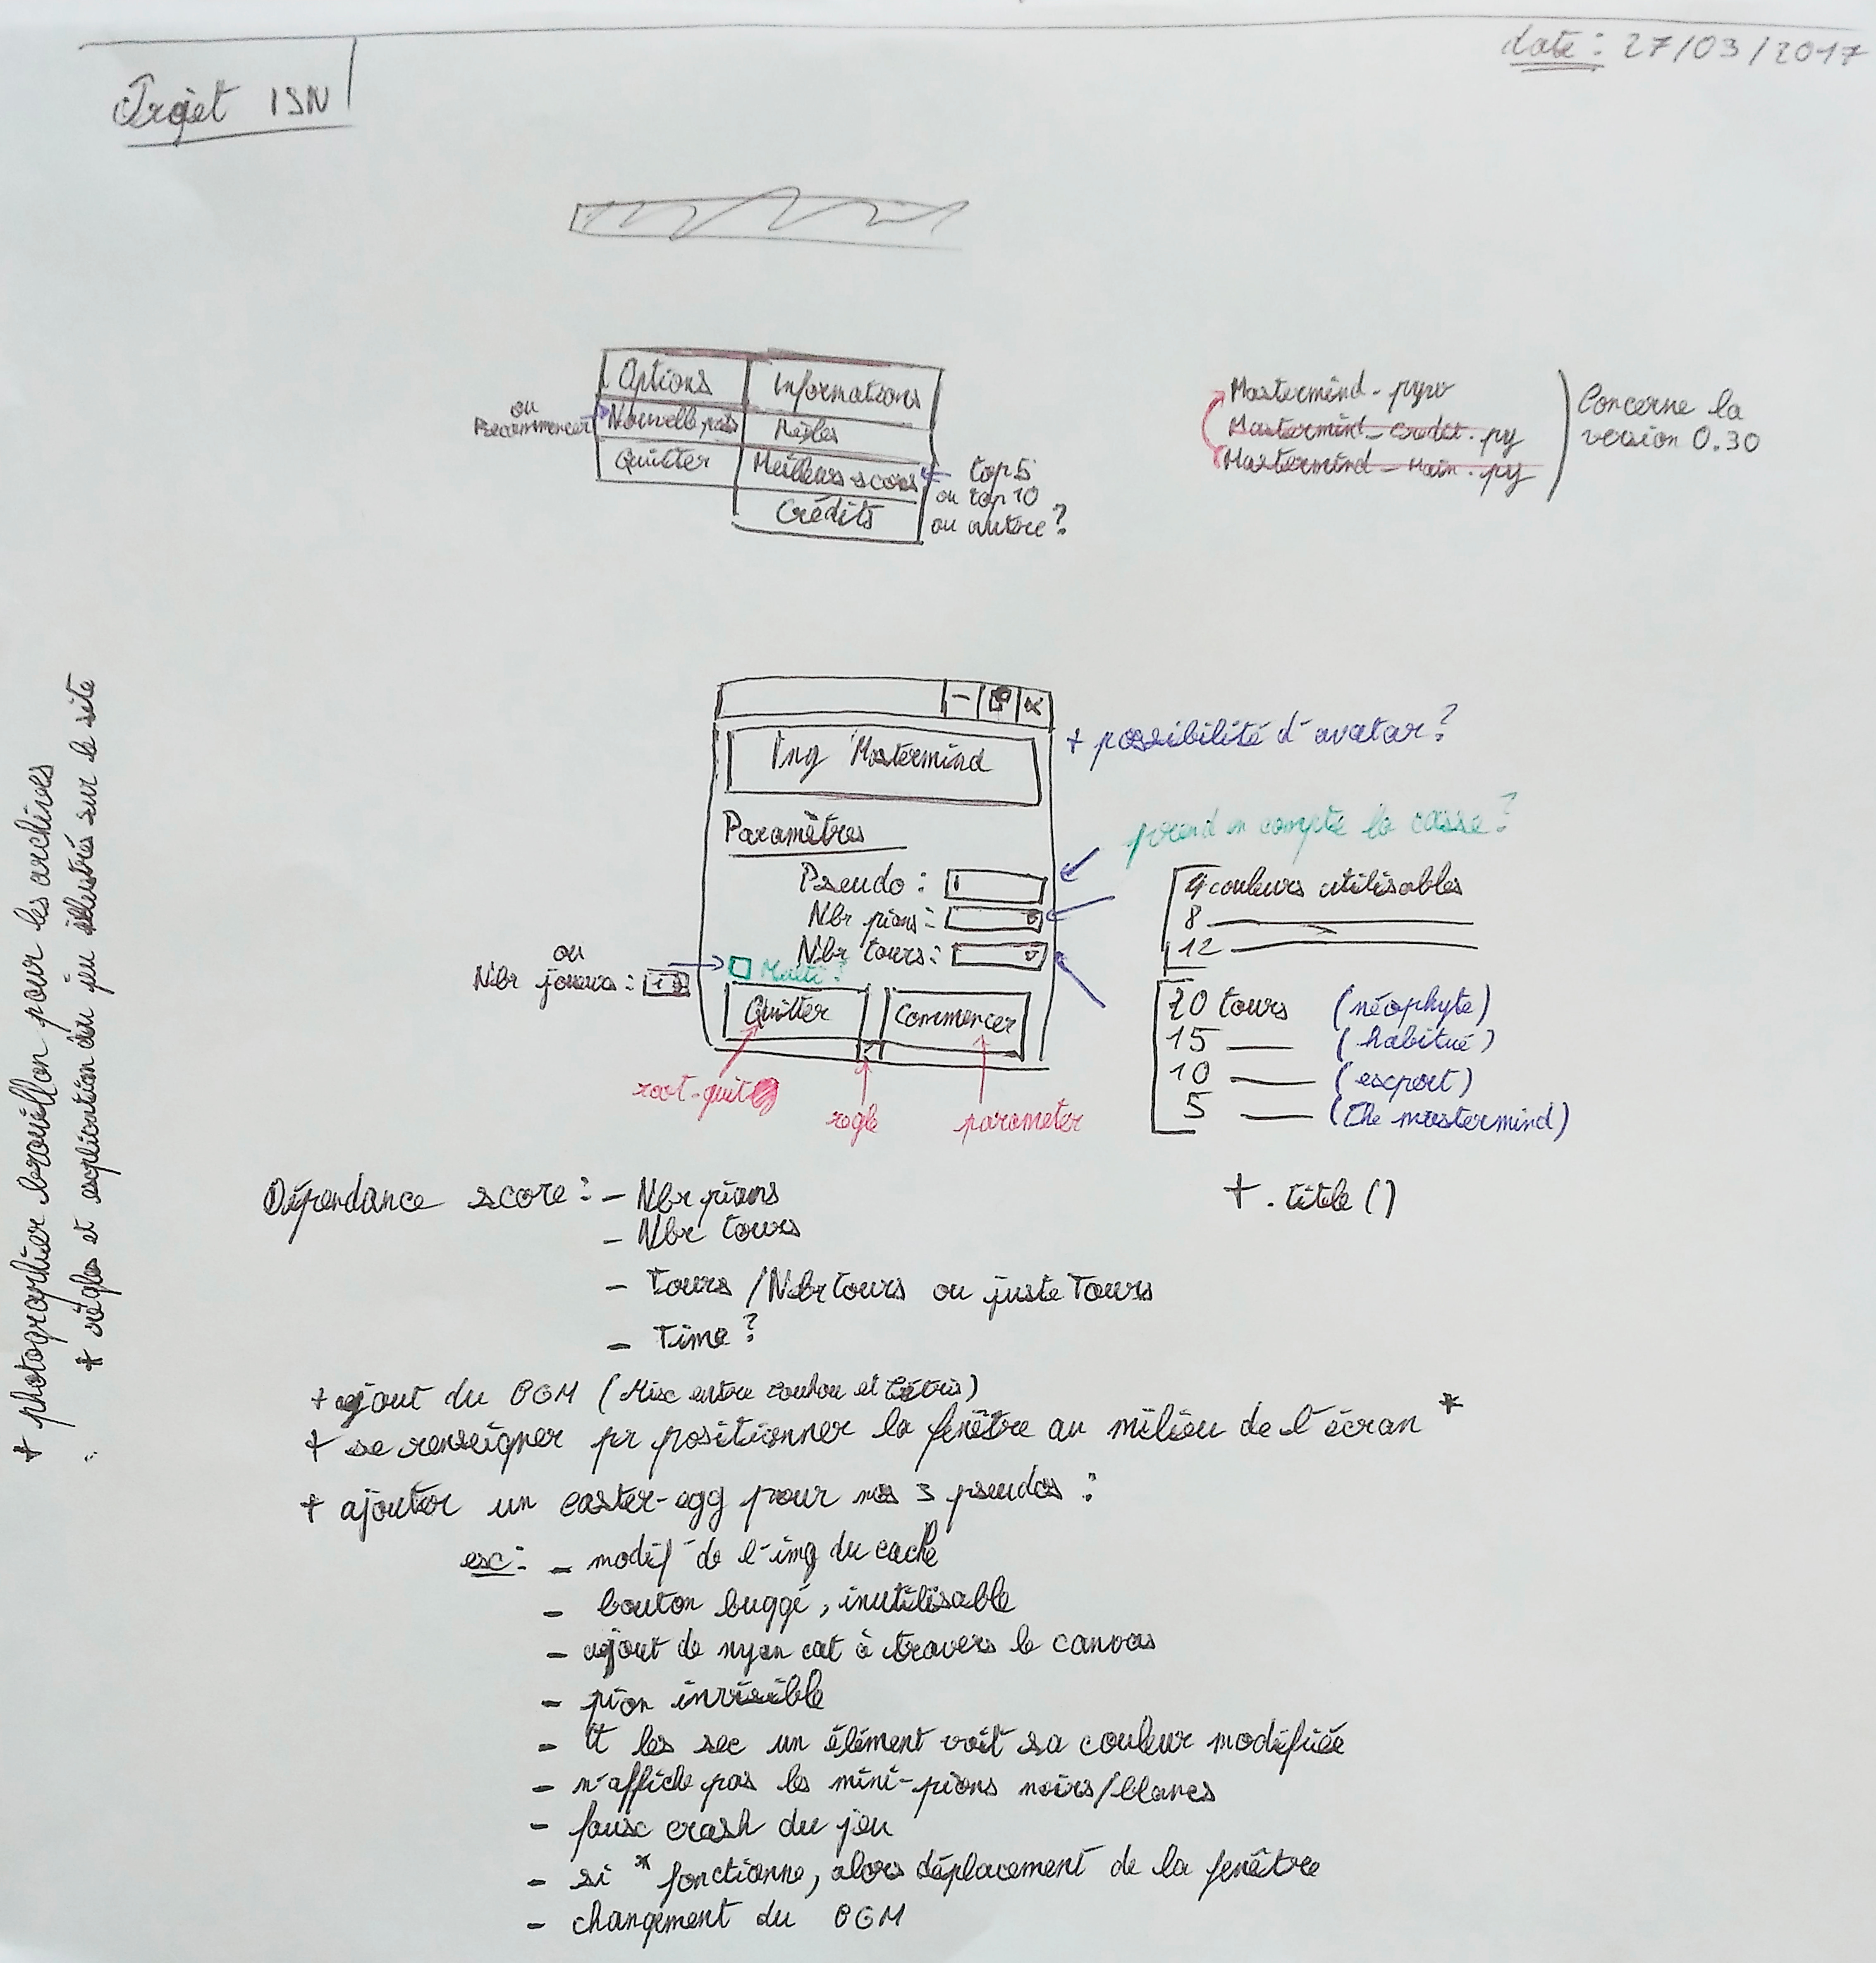 date : 27/03/2017
Projet ISN
Options
Informations
ou
Recommencer
Nouvelle partie
Règles
Quitter
Meilleurs scores
top 5
ou top 10
ou autre ?
Crédits
Mastermind - .pyw
Mastermind - credit.py
Mastermind - Main.py
Concerne la
version 0.30
- x
Img Mastermind
+ possibilité d'avatar ?
Paramètres
prend en compte la casse ?
Pseudo :
Nbr pions :
Nbr tours :
4 couleurs utilisables
8
12
ou
Nbr joueurs :
Multi ?
Quitter
Commencer
20 tours (néophyte)
15 (habitué)
10 (expert)
5 (the mastermind)
root-quit
regle
parameter
Dépendance score : - Nbr pions
- Nbr tours
- Tours / Nbr tours ou juste Tours
- Time ?
+ .title ()
+ ajout du BGM (Mix entre et Tétris)
+ se renseigner pr positionner la fenêtre au milieu de l'écran *
+ ajouter un easter-egg pour nos 3 pseudos :
ex : - modif de l'img du cache
- bouton buggé, inutilisable
- ajout de nyan cat à travers le canvas
- pion invisible
- tt les sec un élément voit sa couleur modifiée
- n'affiche pas les mini-pions noirs/blancs
- faux crash du jeu
- si * fonctionne, alors déplacement de la fenêtre
- changement du BGM
+ photographier brouillon pour les archives
+ règles et explication du jeu illustrés sur le site